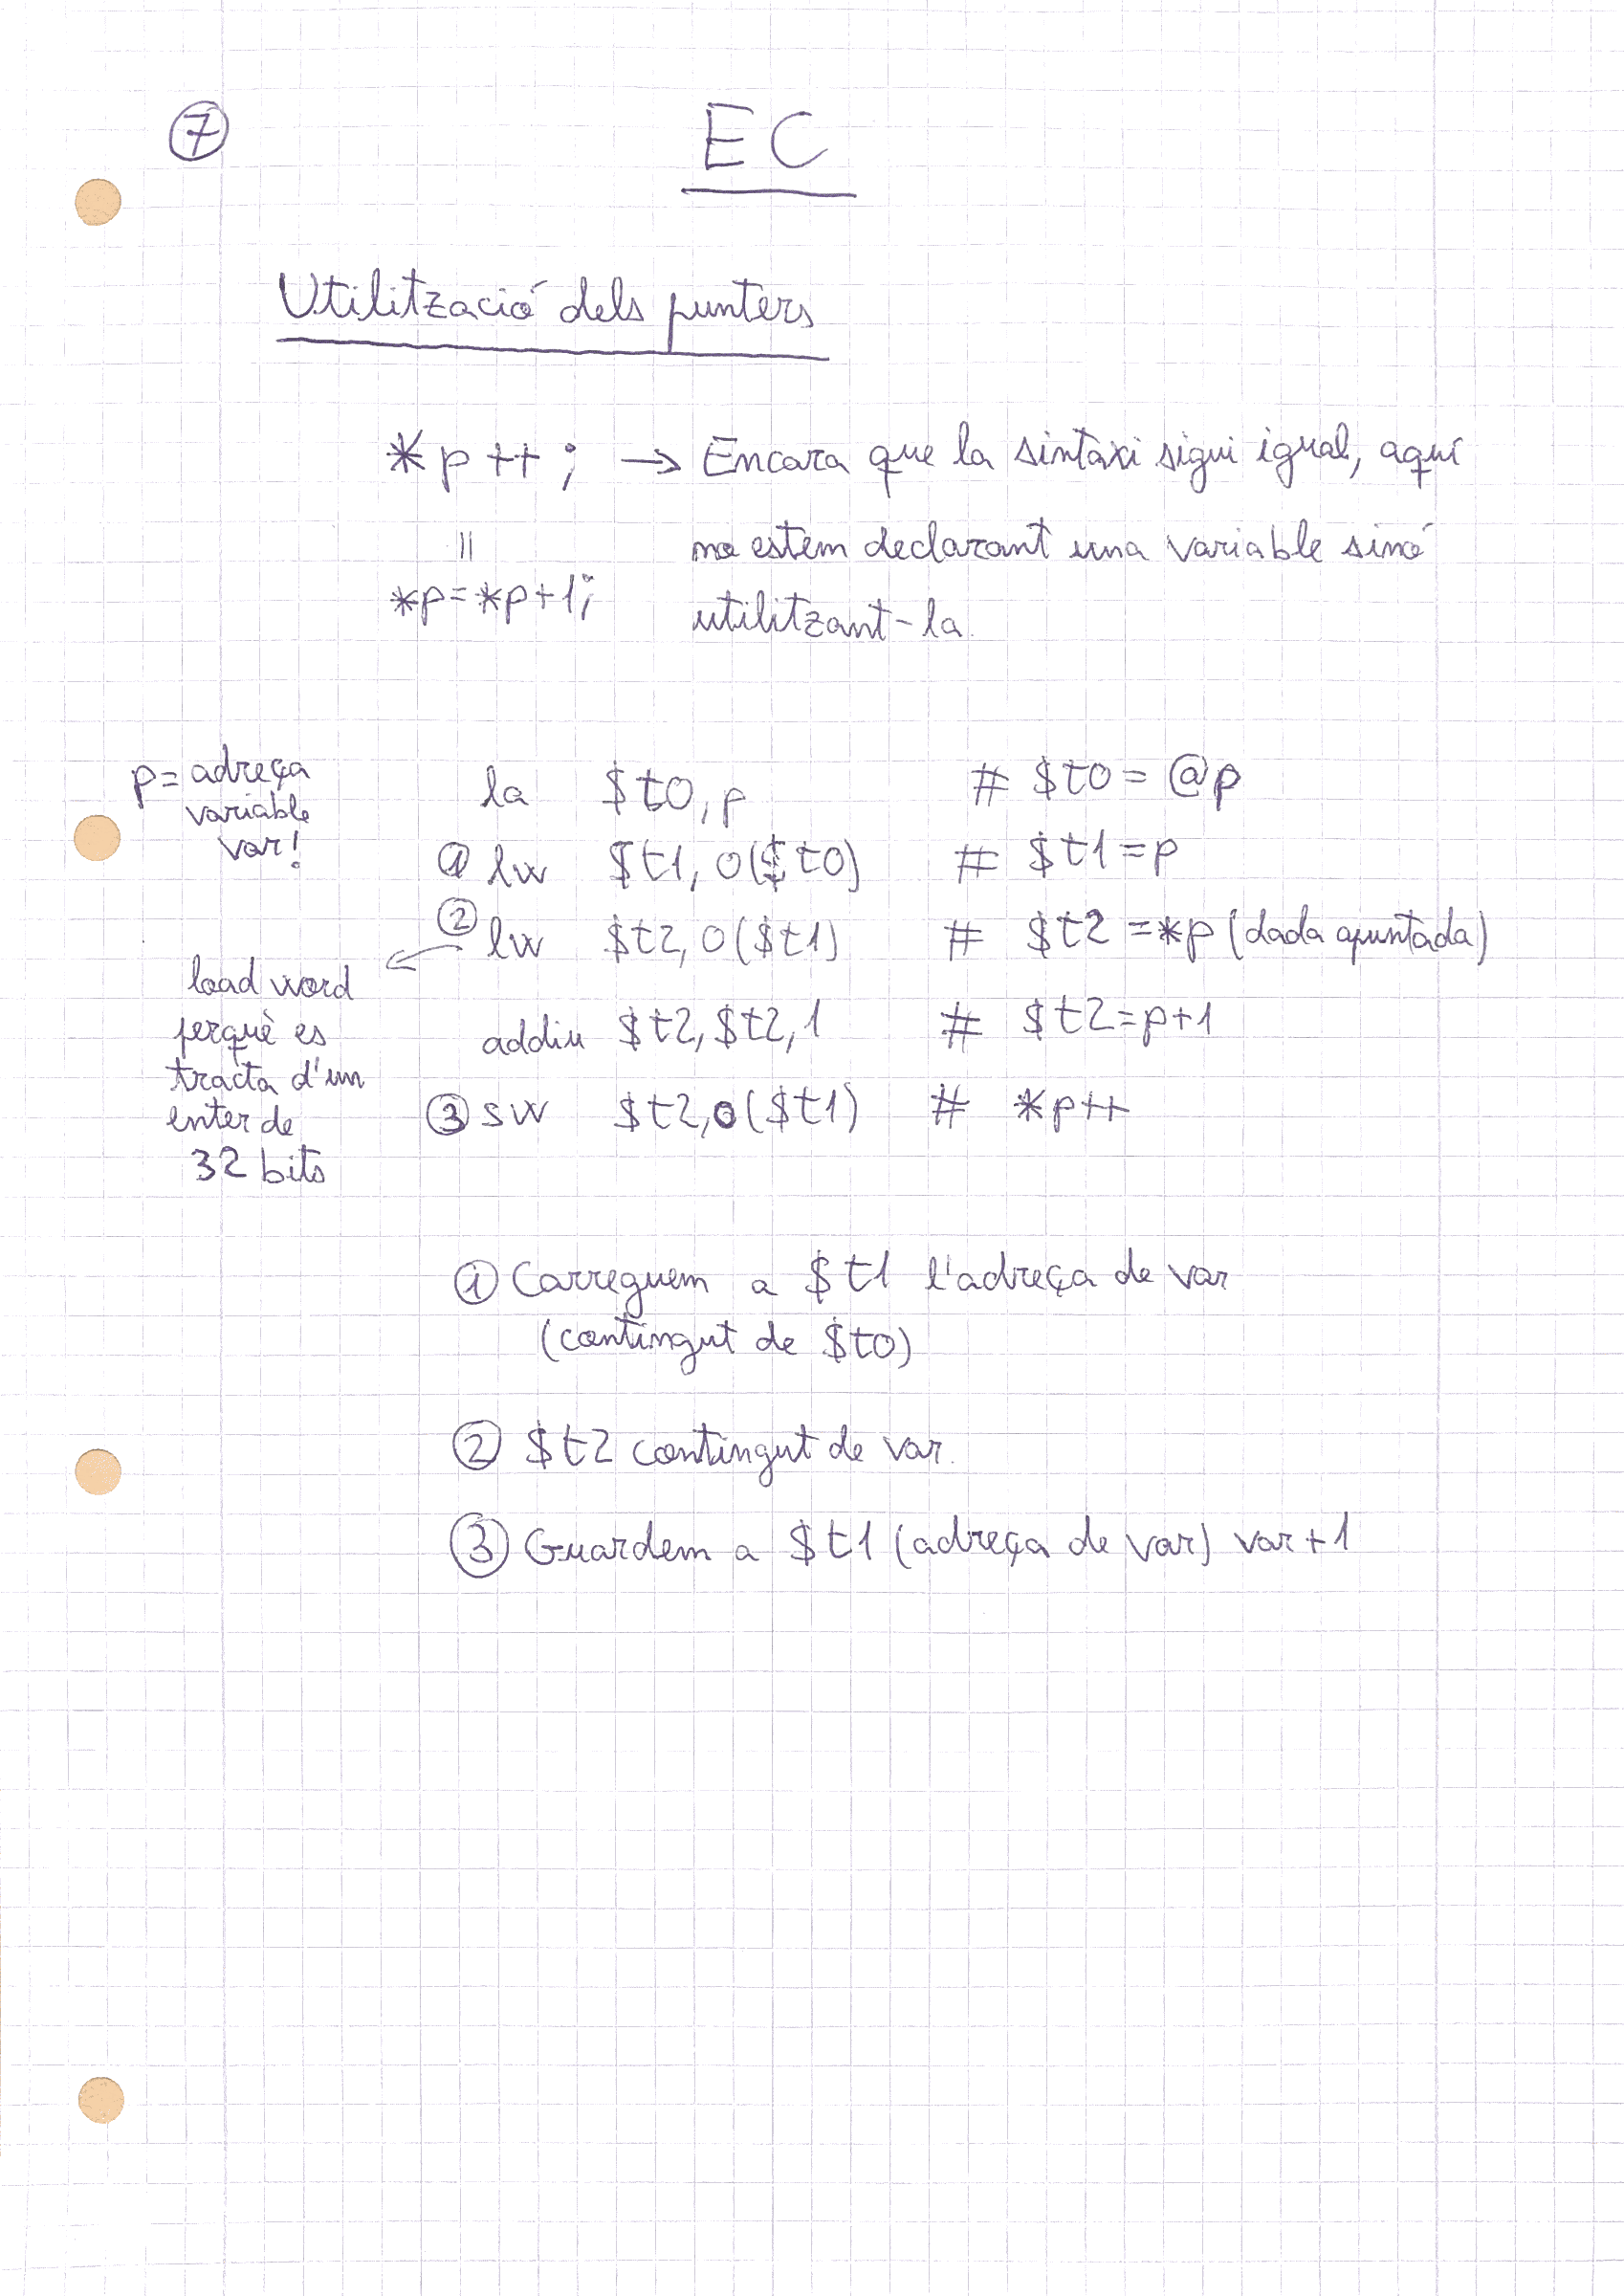 7
EC
Utilització dels punters
*p++; → Encara que la sintaxi sigui igual, aquí
no estem declarant una variable sinó
utilitzant-la.
||
*p=*p+1;
p= adreça
variable
var!
la $t0, p # $t0 = @p
① lw $t1, 0($t0) # $t1 = p
② lw $t2, 0($t1) # $t2 = *p (dada apuntada)
load word
perquè es
tracta d'un
enter de
32 bits
addiu $t2, $t2, 1 # $t2=p+1
③ sw $t2, 0($t1) # *p++
① Carreguem a $t1 l'adreça de var
(contingut de $t0)
② $t2 contingut de var.
③ Guardem a $t1 (adreça de var) var+1